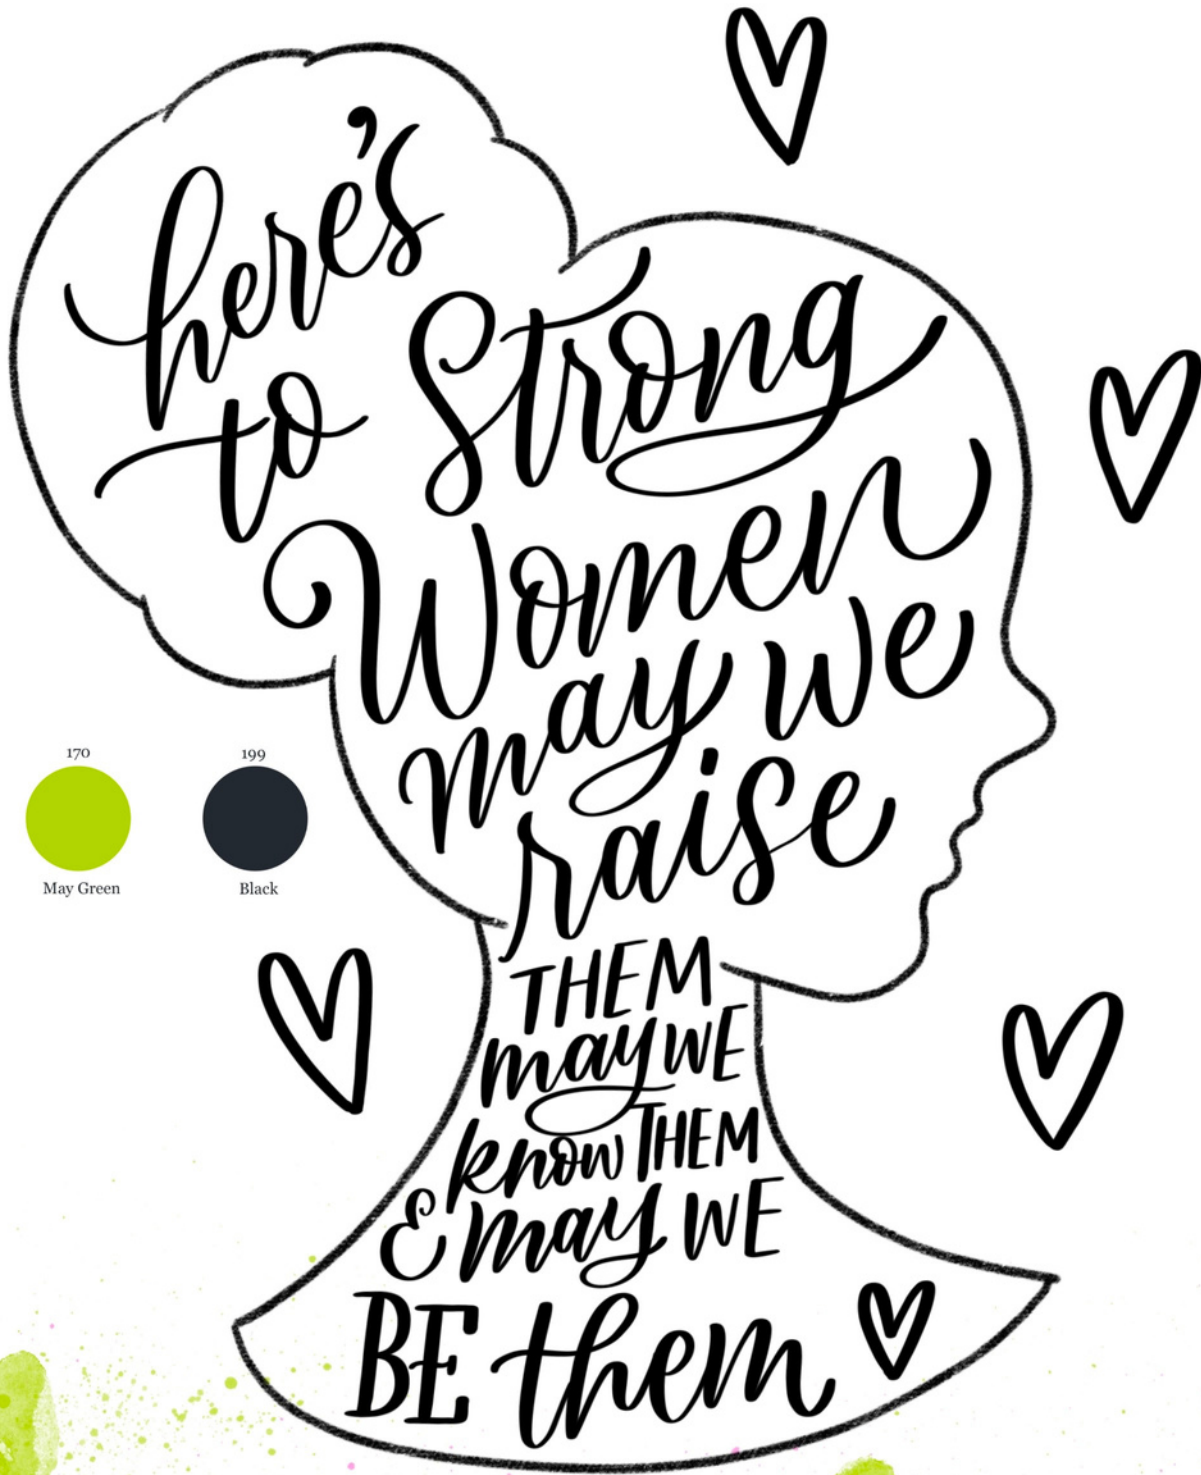 here's
to Strong
Women
may we
raise
THEM
may WE
know THEM
& may WE
BE them
170
May Green
199
Black